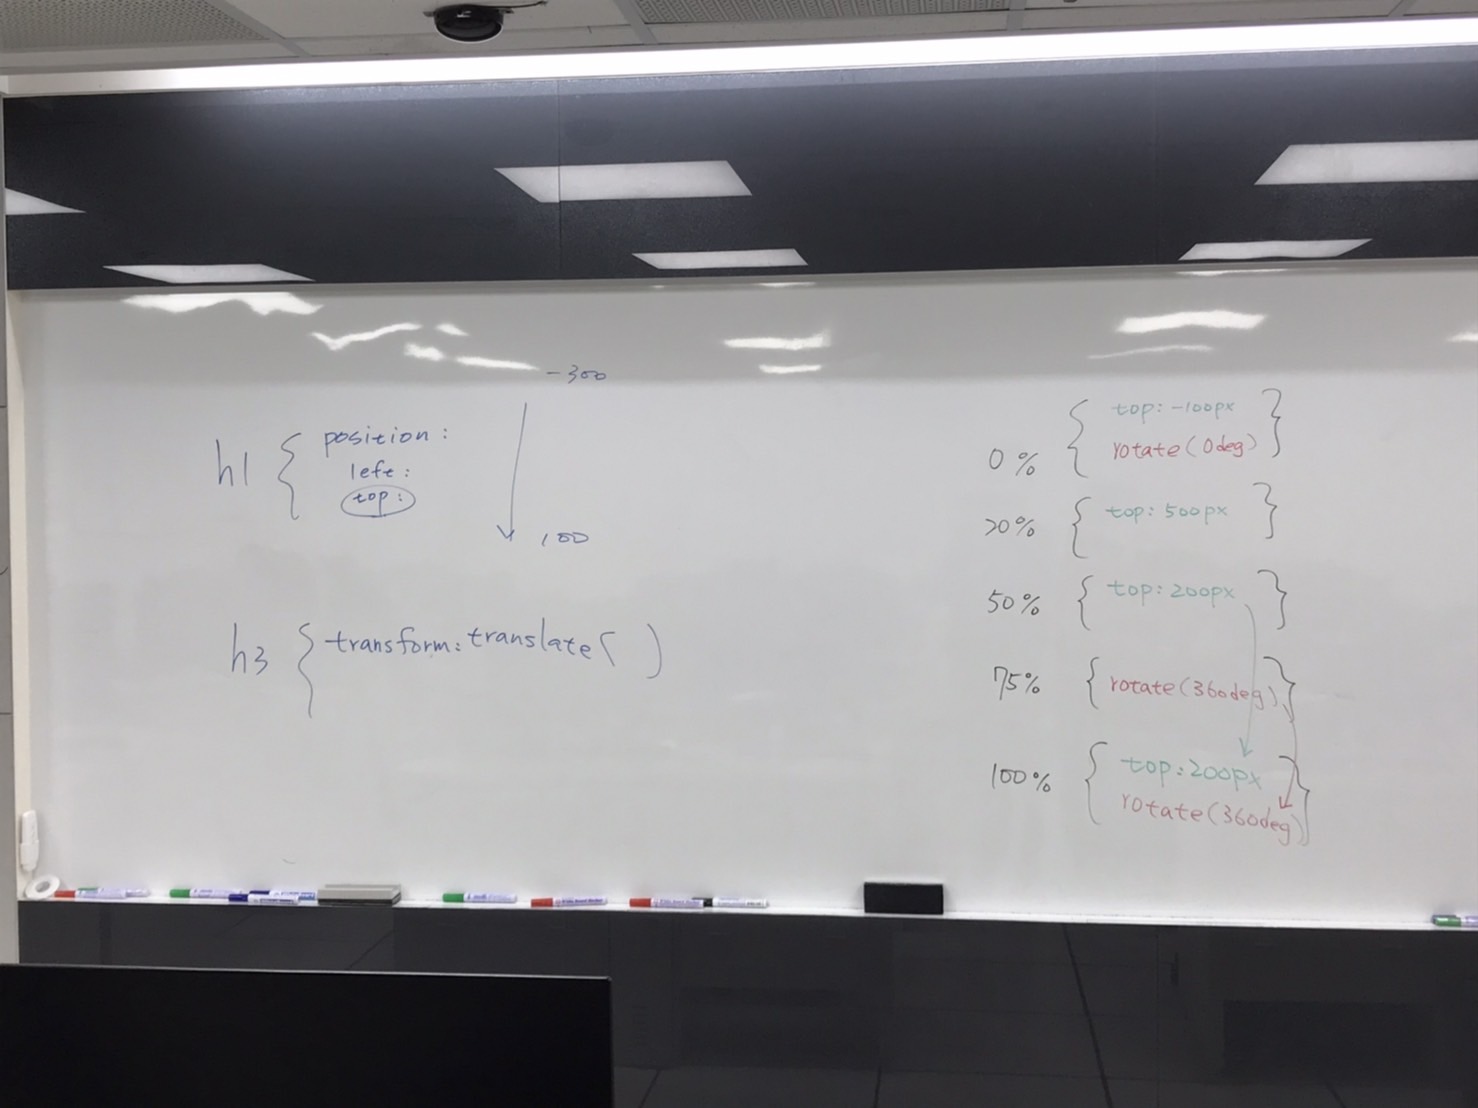 -300
h1 { position:
left:
top:
100
h3 { transform: translate( )
0% { top: -100px
rotate(0deg) }
20% { top: 500px }
50% { top: 200px }
75% { rotate(360deg) }
100% { top: 200px
rotate(360deg) }